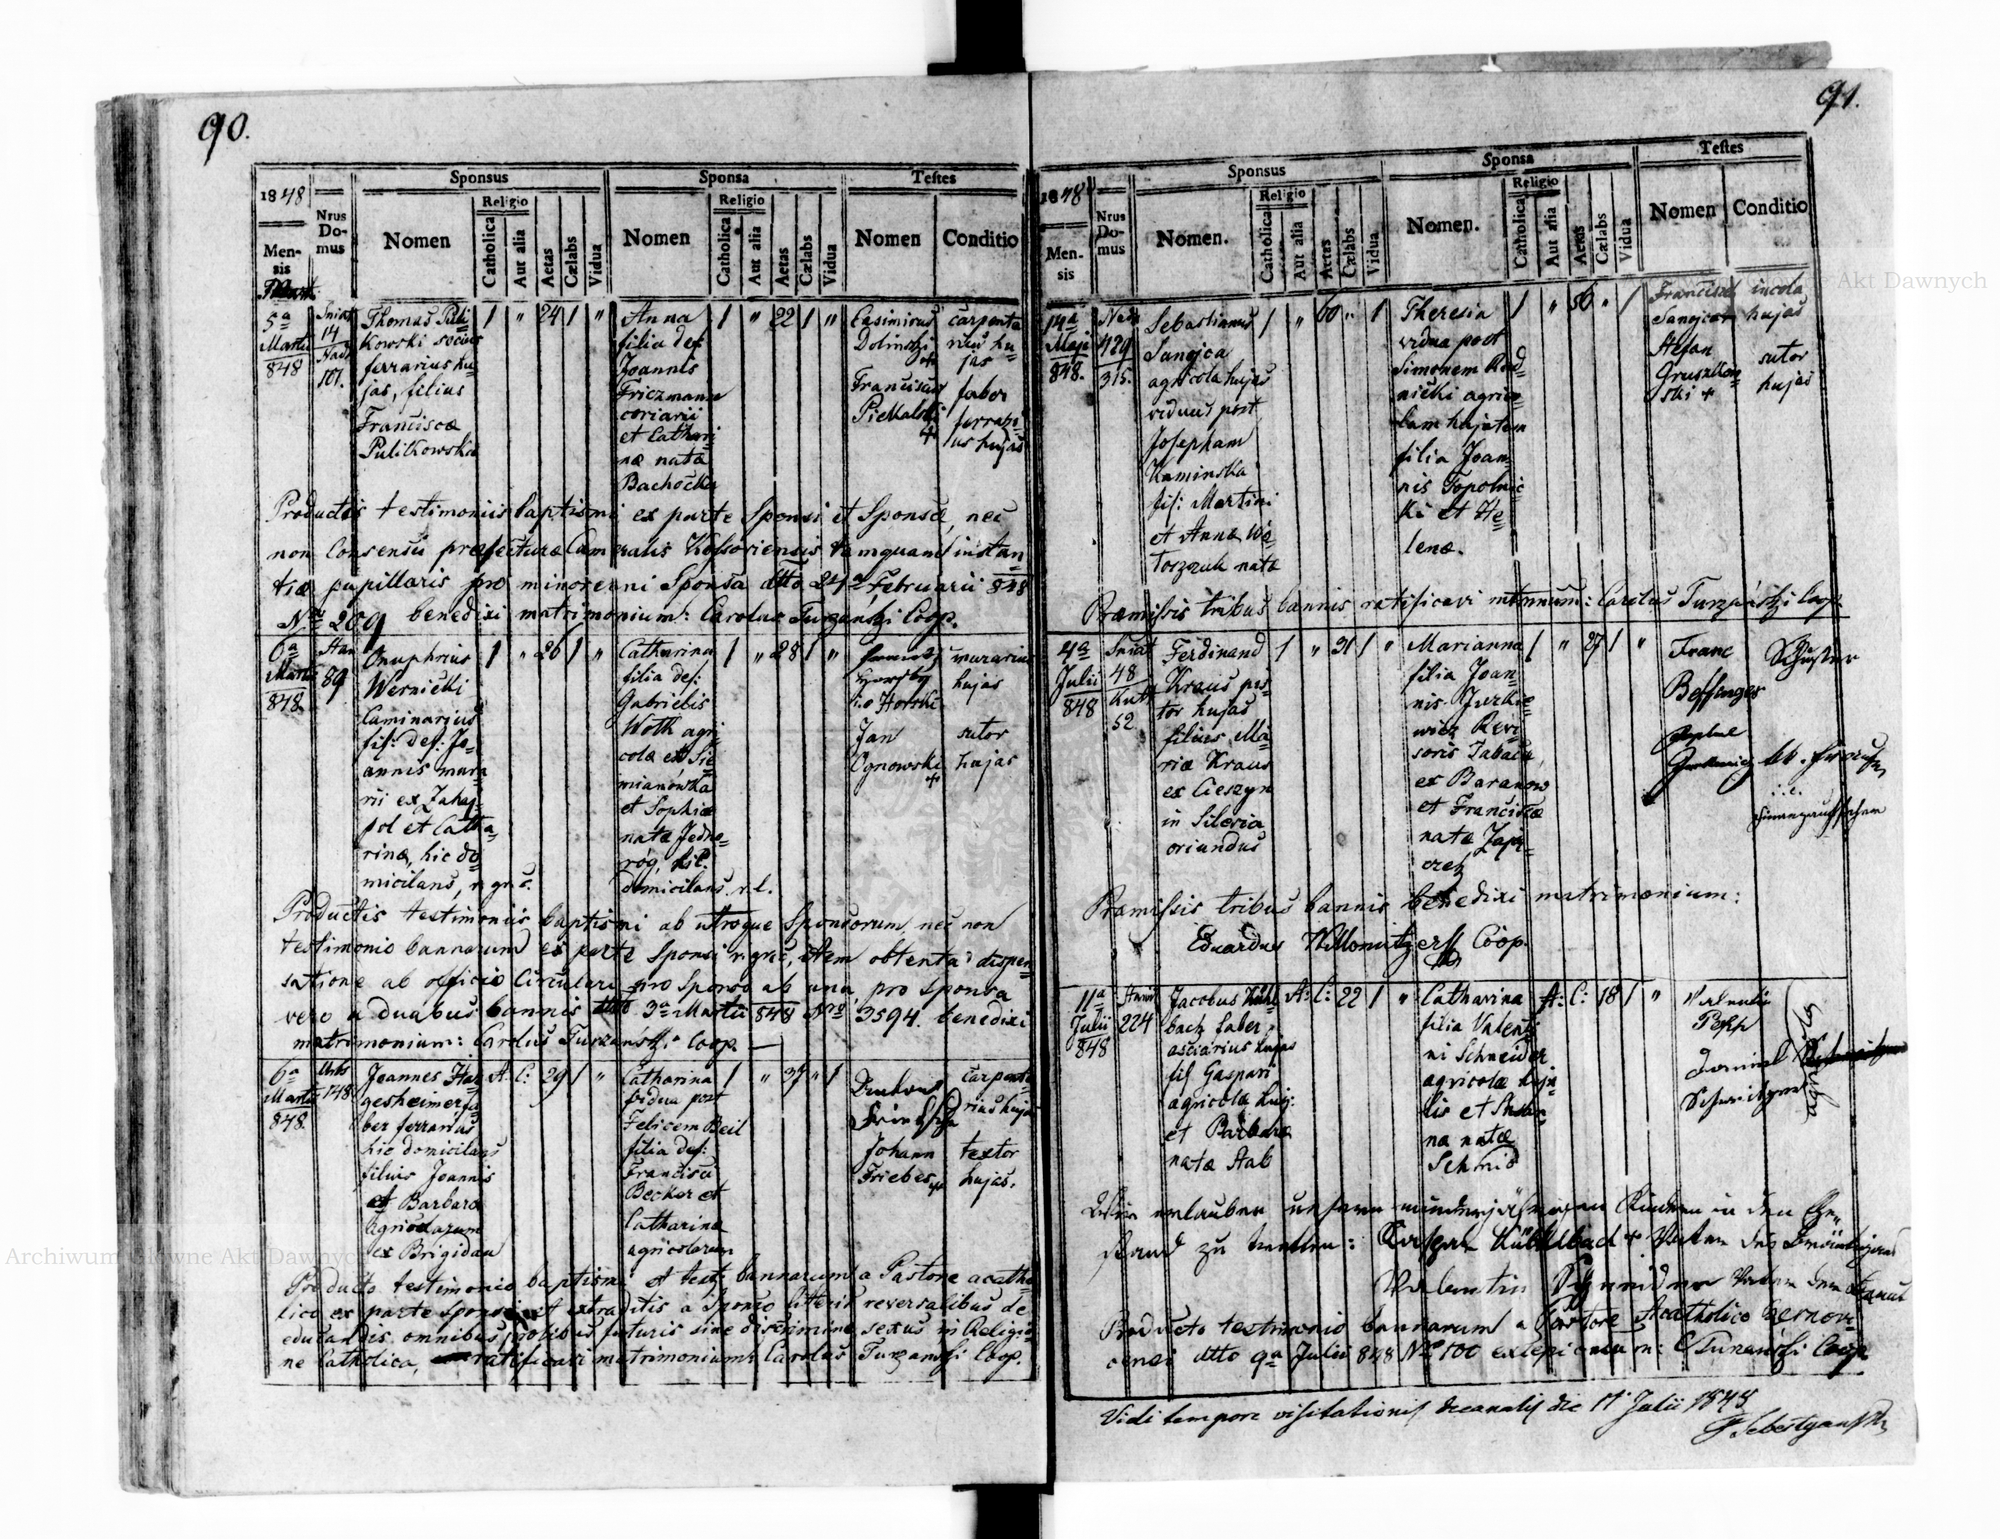 90.
Sponsus
Sponsa
Testes
1848
Nrus Domus
Mensis
Nomen
Religio
Catholica
Aut alia
Aetas
Cælabs
Vidua
Nomen
Religio
Catholica
Aut alia
Aetas
Cælabs
Vidua
Nomen
Conditio
5a
Martii
848
14
101.
Thomas Puli
kowski socius
ferrarius hu
jas, filius
Franciscæ
Pulikowska
1 " 24 1 "
Anna
filia def:
Joannis
Friczmann
coriarii
et Cathari
næ natæ
Bachočka
1 " 22 1 "
Casimirus
Dolinski
+
Franciscus
Piekalski
+
carpenta
rius hu=
jas
faber
ferrari=
us hujas
Productis testimoniis baptismi ex parte Sponsi et Sponsæ, nec
non Consensu præfecturæ Cameralis Kossoviensis tamquam instan=
tiæ pupillaris pro minorenni Sponsa dtto 24a Februarii 848
Nro 209 benedixi matrimonium: Carolus Turzanski Coop.
6a
Martii
848
89
Onuphrius
Wernički
Caminarius
fil: def: Jo=
annis mura
rii ex Zahaj=
pol et Catha=
rinæ, hic do
micilans, r. gr. c.
1 " 26 1 "
Catharina
filia def:
Gabrielis
Woth agri=
colæ ex Sie
mianówka
et Sophiæ
natæ Jedno=
róg, hic
domicilans r. l.
1 " 28 1 "
Jan
Ognowski
+
murarius
hujas
sutor
hujas
Productis testimoniis baptismi ab utroque Sponsorum, nec non
testimonio bannorum ex parte Sponsi r. gr. c., item obtenta dispen
satione ab officio Circulari pro Sponso ab una, pro Sponsa
vero a duabus bannis dtto 3a Martii 848 Nro 3594. benedixi
matrimonium: Carolus Turzanski Coop.
6a
Martii
848
148
Joannes Har
gesheimer fa
ber ferrarius
hic domicilans
filius Joannis
et Barbaræ
agricolarum
ex Brigidau
A: C: 29 1 "
Catharina
vidua post
Felicem Beil
filia def:
Francisci
Becker et
Catharinæ
agricolarum
1 " 37 " 1
Johann
Friebes
carpenta
rius hujas
textor
hujas.
Producto testimonio baptismi et test: bannorum a Pastore acatho
lico ex parte Sponsi, et extraditis a Sponso litteris reversalibus de
educandis omnibus prolibus futuris sine discrimine sexus in Religio
ne Catholica, ratificavi matrimonium: Carolus Turzanski Coop.
91.
Sponsus
Sponsa
Testes
1848
Nrus Domus
Mensis
Nomen.
Religio
Catholica
Aut alia
Aetas
Cælabs
Vidua
Nomen.
Religio
Catholica
Aut alia
Aetas
Cælabs
Vidua
Nomen
Conditio
14a
Maji
848.
429
315.
Sebastianus
Sanojca
agricola hujas
viduus post
Josepham
Kaminska
fil: Martini
et Annæ Wa=
torzzuk natæ
1 " 60 " 1
Theresia
vidua post
Simonem Rud=
nički agrico=
lam hujatem
filia Joan
nis Topolnic
ki et He=
lenæ.
1 " 56 " 1
Francisek
Sanojca
Stefan
Gruszkow=
ski +
incola
hujas
sutor
hujas
Præmissis tribus bannis ratificavi mtmnum: Carolus Turzański Coop.
4a
Julii
848
Sniat
48
52
Ferdinand
Kraus pis=
tor hujas
filius Ma=
riæ Kraus
ex Cieszyn
in Silesia
oriundus
1 " 31 1 "
Marianna
filia Joan=
nis Jurkie=
wicz Revi=
soris Tabacæ
ex Baranow
et Franciscæ
natæ Zapo=
rcez
1 " 27 1 "
Franc
Schuster
Præmissis tribus bannis benedixi matrimonium:
Eduardus Willomitzer Coop.
11a
Julii
848
224
Jacobus Kühl
bach faber
asciarius hujas
fil Gaspari
agricolæ huj:
et Barbaræ
natæ Aab
A: C: 22 1 "
Catharina
filia Valenti
ni Schneider
agricolæ huja
tis et Susan=
na natæ
Schmid
A: C: 18 1 "
Valentin
Pepp
Wir erlauben unseren minderjährigen Kindern in den Ehe=
stand zu tretten: Kaspar Kühlbach + Vater des Bräutigams
Valentin Schneider Vater der Braut
Producto testimonio bannorum a Pastore Acatholico Czernovi=
censi dtto 9a Julii 848 Nro 100 excepi
C Turzański Coop
Vidi tempore visitationis decanalis die 17 Julii 1848
Archiwum Główne Akt Dawnych
Archiwum Główne Akt Dawnych